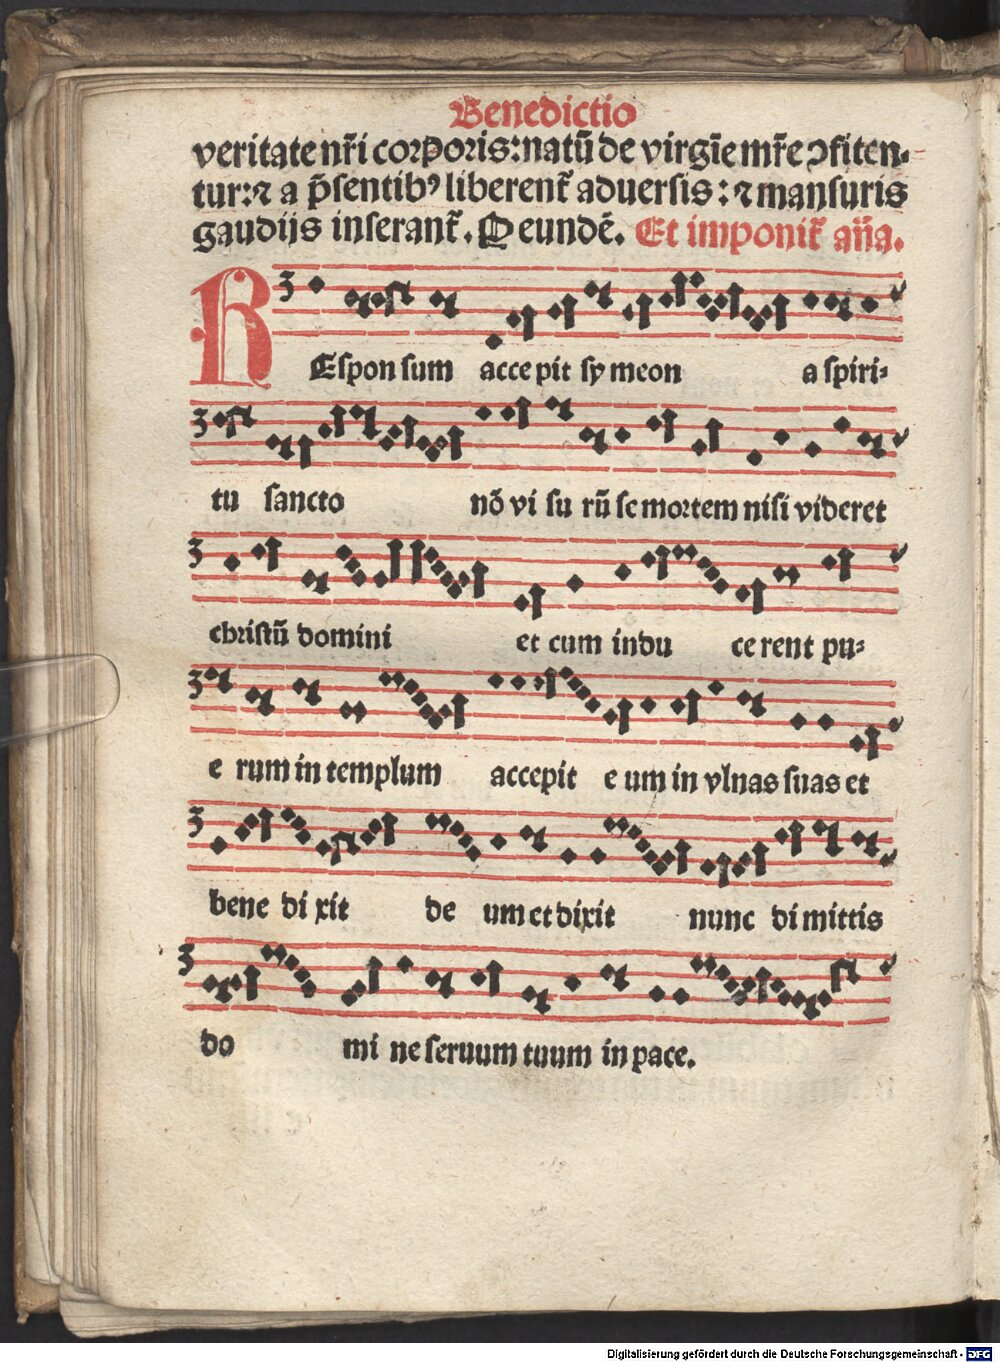 Benedictio
veritate nr̄i corporis: natū de virgīe mr̄e ↄfiten-
tur: ⁊ a p̄sentibꝰ liberent᷑ aduersis: ⁊ mansuris
gaudijs inserant᷑. P eundē. Et imponit᷑ aña.
REspon sum acce pit sy meon a spiri-
tu sancto nō vi su rū se mortem nisi videret
christū domini et cum indu ce rent pu-
e rum in templum accepit e um in vlnas suas et
bene di xit de um et dixit nunc di mittis
do mi ne seruum tuum in pace.
Digitalisierung gefördert durch die Deutsche Forschungsgemeinschaft - DFG